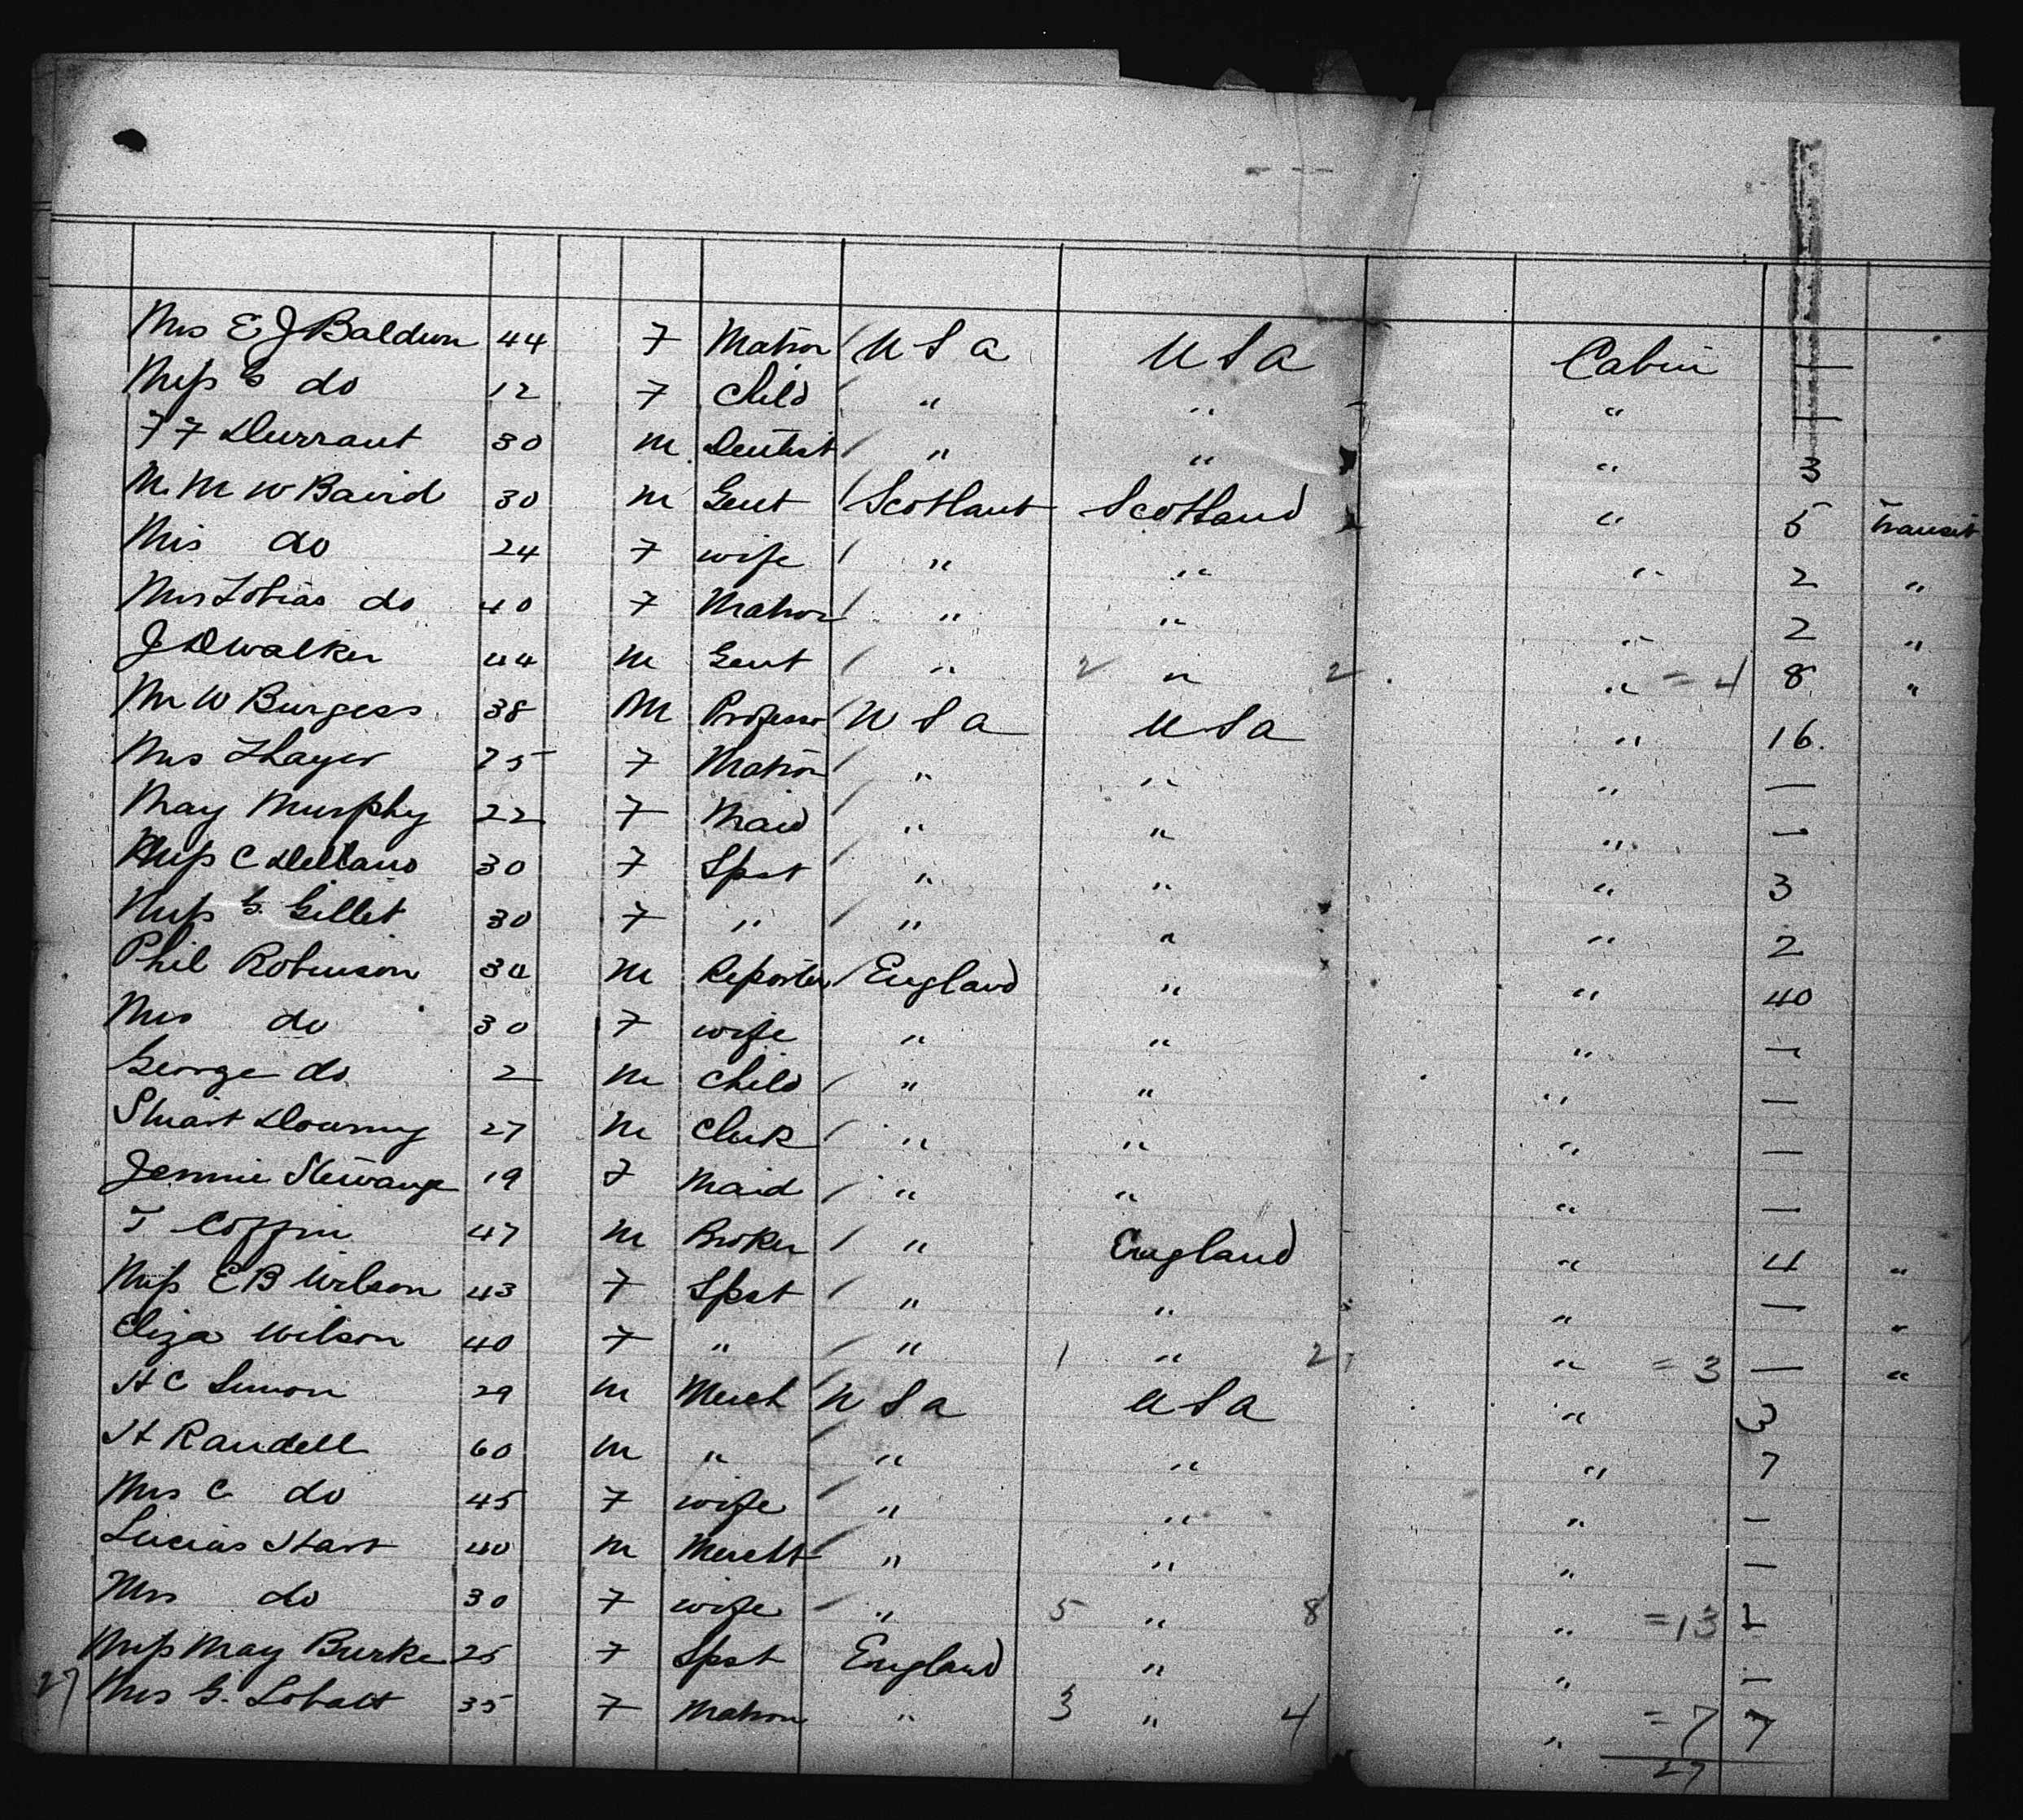 Mrs E J Baldwin 44 F Matron / U S a U S a Cabin —
Miss G do 12 F Child / " " " —
F F Durrant 30 M Dentist / " " " 3
M. M W Baird 30 M Gent / Scotland Scotland " 5 Transit
Mrs do 24 F wife / " " " 2 "
Mrs Tobias do 40 F Matron / " " " 2 "
J D Walker 44 M Gent / " 2 " 2 " = 4 8 "
Mr W Burgess 38 M Professor U S a U S a " 16.
Mrs Thayer 25 F Matron / " " " —
May Murphy 22 F Maid / " " " —
Miss C 30 F Spst / " " " 3
Miss G. Gillet 30 F " / " " " 2
Phil Robinson 30 M Reporter / England " " 40
Mrs do 30 F wife " " " —
George do 2 M Child / " " " —
Stuart Downing 27 M Clerk / " " " —
Jennie 19 F Maid / " " " —
T. Coffin 47 M Broker / " England " 4 "
Miss E B Wilson 43 F Spst / " " " — "
Eliza Wilson 40 F " / " 1 " 2 " = 3 — "
H C Simon 29 M Merch / U S a U S A " 3
H Randell 60 M " / " " " 7
Mrs C do 45 F wife / " " " —
Lucius Hart 40 M Mercht / " " " —
Mrs do 30 F wife / " 5 " 8 " = 13 2
Miss May Burke 25 F Spst England " " —
27 Mrs G. 35 F Matron " 3 " 4 " = 7 7
27